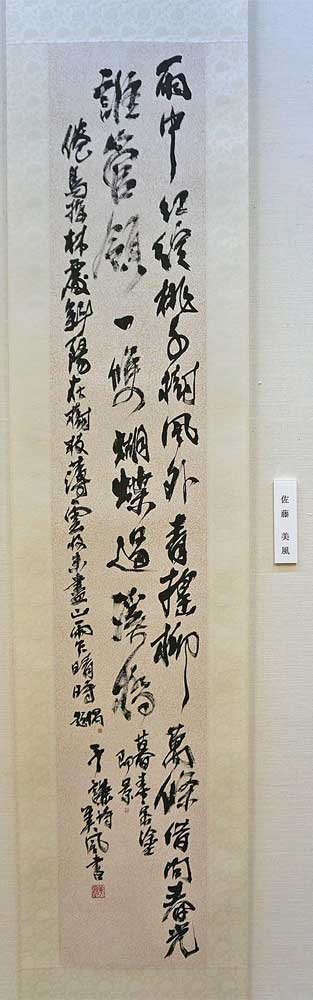 雨中紅綻桃千樹風外青搖柳萬條借問春光
誰管領一雙蝴蝶過溪橋
暮春客途
即景
倦鳥投林處斜陽在樹枝薄雲收未盡山雨乍晴時
偶
題
于謙詩
美風書
佐藤 美風